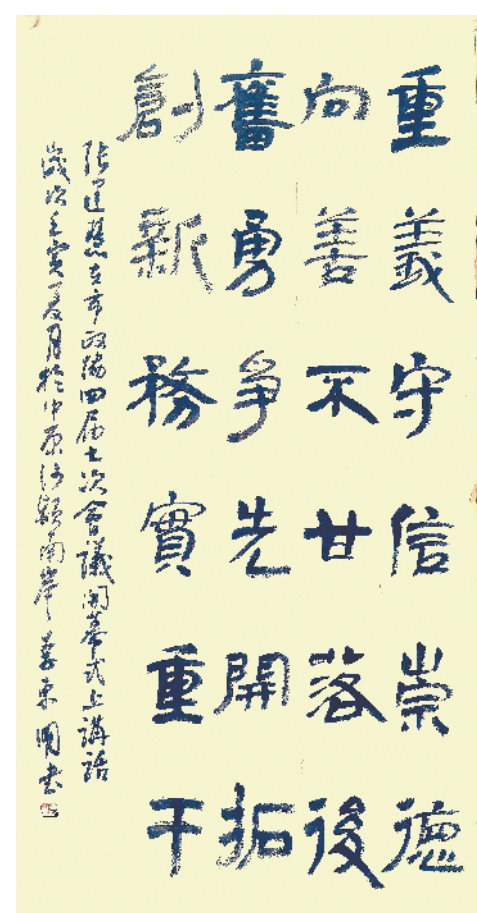 重義守信崇德
向善不甘落後
奮勇爭先開拓
創新務實重干
張建慧在市政協四届七次會議開幕式上講話
歲次壬寅夏月於中原沙潁南岸李東周書